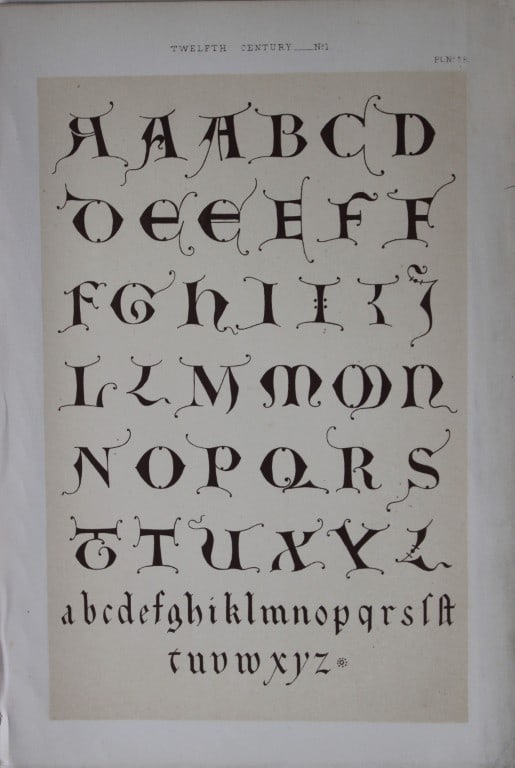 TWELFTH CENTURY___No1.
A A A B C D
D E E E F F
F G H I I I J
L L M M M N
N O P Q R S
T T U X Y Z
abcdefghiklmnopqrsſſt
tuvwxyz